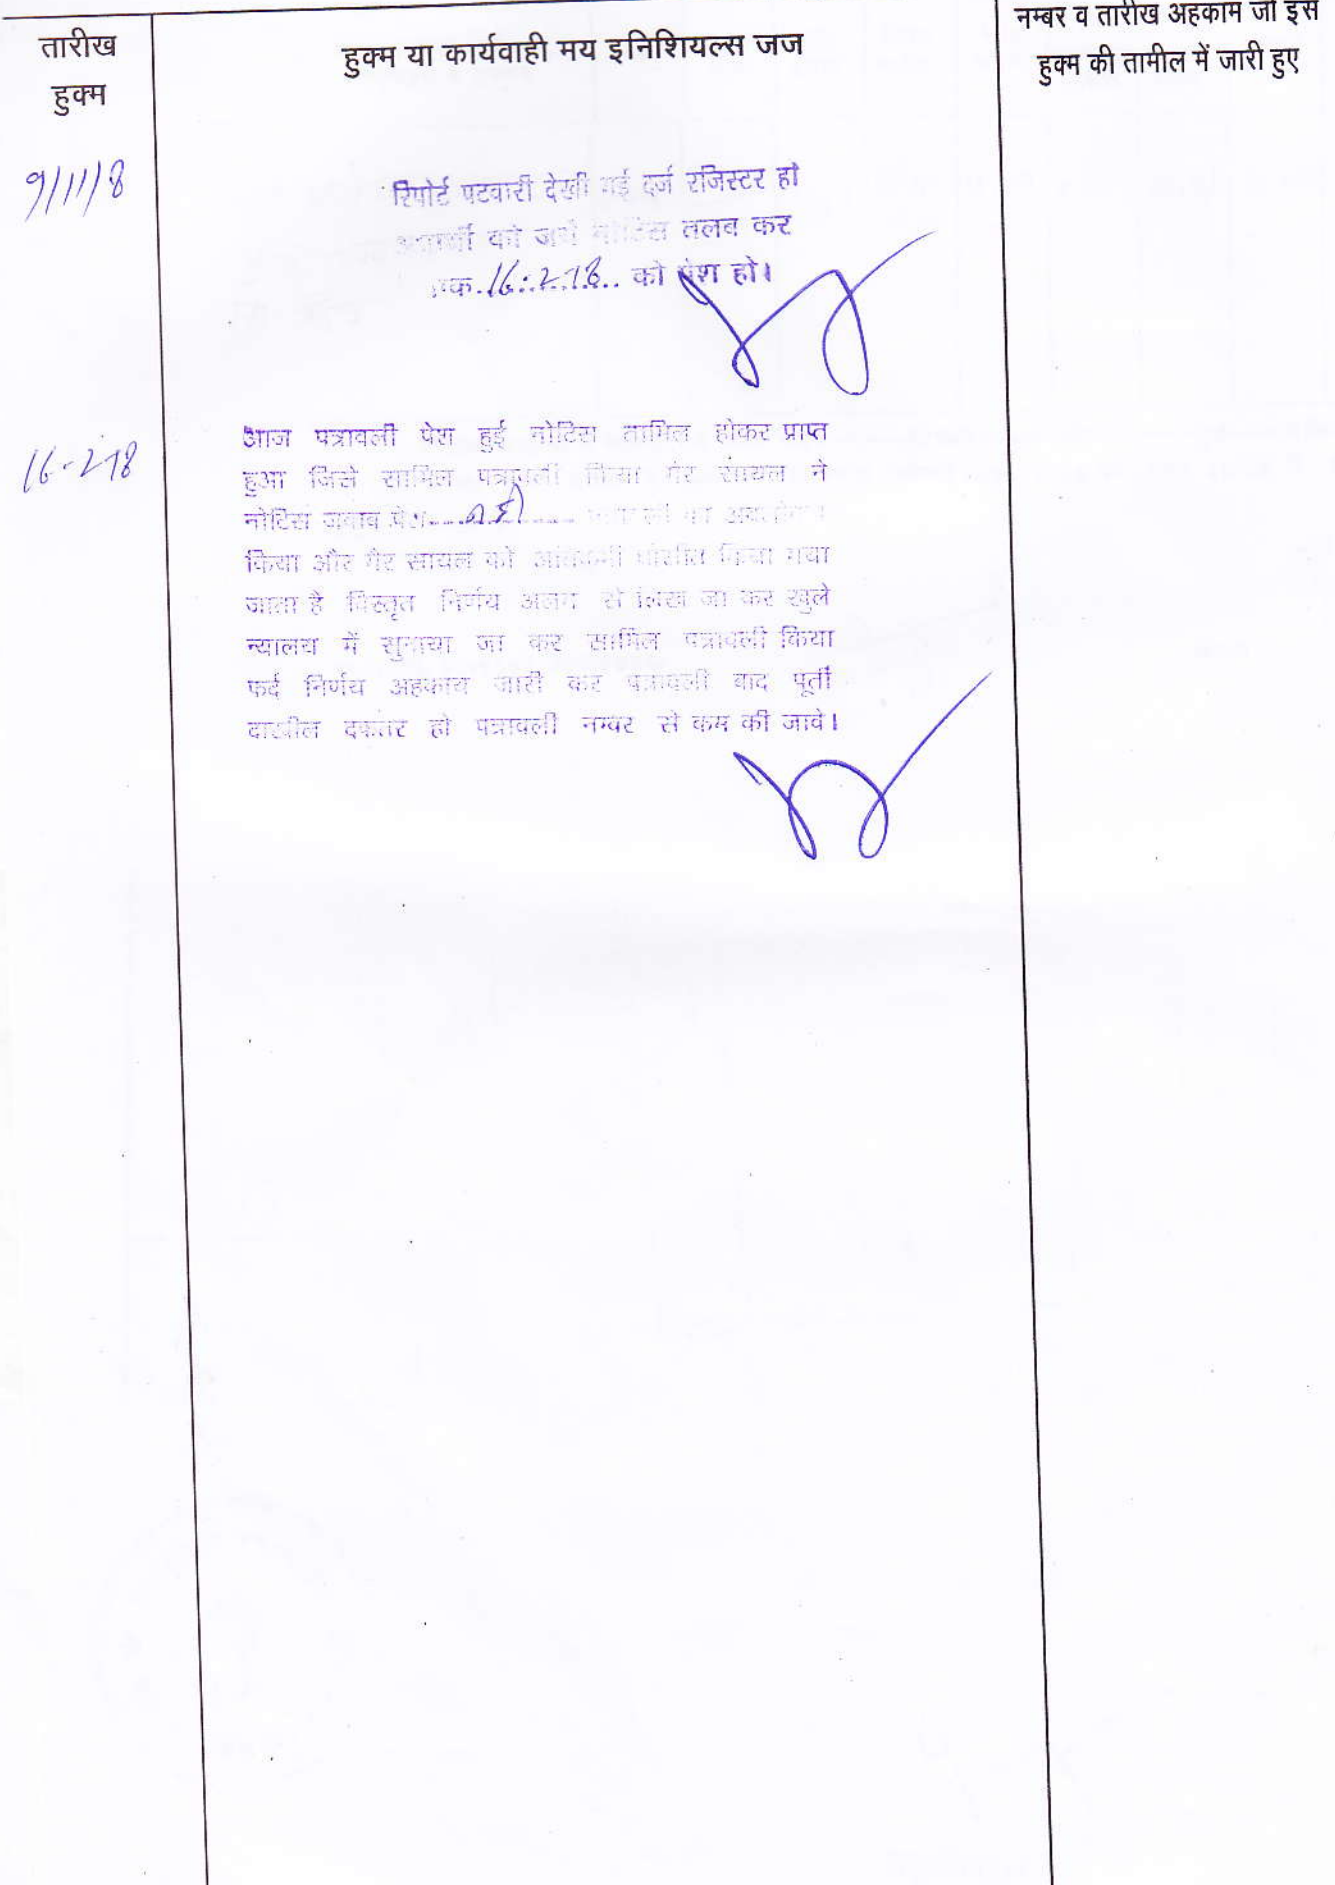 तारीख
हुक्म
हुक्म या कार्यवाही मय इनिशियल्स जज
नम्बर व तारीख अहकाम जो इस
हुक्म की तामील में जारी हुए
9/1/18
रिपोर्ट पटवारी देखी गई दर्ज रजिस्टर हो
को जर्ये नोटिस तलब कर
16-2-18 को पेश हो।
16-2-18
आज पत्रावली पेश हुई नोटिस तामिल होकर प्राप्त
हुआ जिसे सामिल पत्रावली किया गैर सायल ने
नोटिस जबाब पेश नहीं
किया और गैर सायल को किया गया
जाता है विस्तृत निर्णय अलग से लिखा जा कर खुले
न्यालय में सुनाया जा कर सामिल पत्रावली किया
फर्द निर्णय अहकाय जारी कर पत्रावली बाद पूर्ती
दाखील दफ्तर हो पत्रावली नम्बर से कम की जावे।